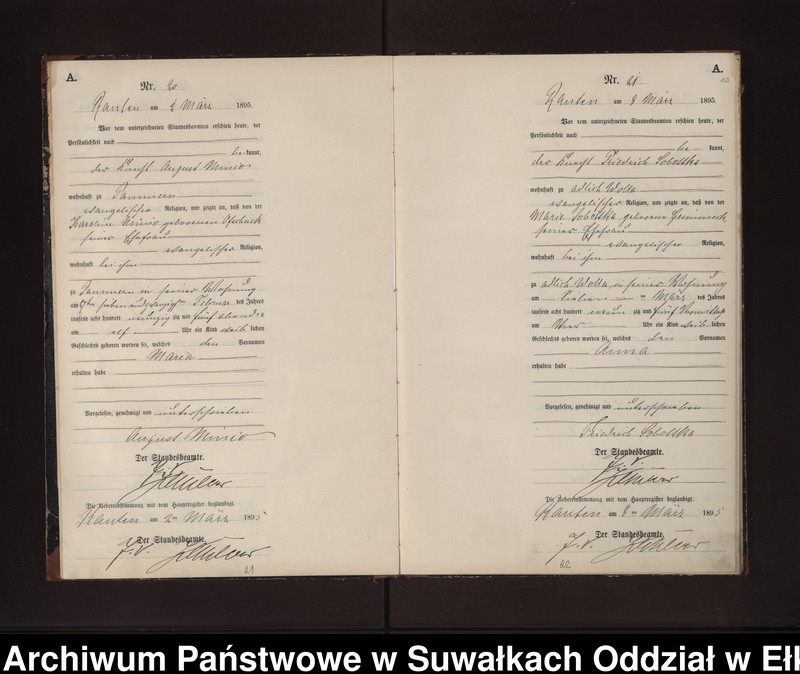 A.
Nr. 20
Kauten am 2 März 1895.
Vor dem unterzeichneten Standesbeamten erschien heute, der
Persönlichkeit nach
be kannt,
der Knecht August Minio
wohnhaft zu
evangelischer Religion, und zeigte an, daß von der
Karoline Minio geborenen
seiner Ehefrau
evangelischer Religion,
wohnhaft bei ihm
zu in seiner Wohnung
am sieben und zwanzigsten Februar des Jahres
tausend acht hundert neunzig zig und fünf Abends
um elf Uhr ein Kind weib lichen
Geschlechts geboren worden sei, welches den Vornamen
Maria
erhalten habe
Vorgelesen, genehmigt und unterschrieben
August Minio
Der Standesbeamte.
J. V.
Die Uebereinstimmung mit dem Hauptregister beglaubigt.
Kauten am 2ten März 1895
Der Standesbeamte.
J. V.
21
A.
Nr. 21
Kauten am 8 März 1895.
Vor dem unterzeichneten Standesbeamten erschien heute, der
Persönlichkeit nach
be kannt,
der Knecht Friedrich Sobottka
wohnhaft zu adlich Wolla
evangelischer Religion, und zeigte an, daß von der
Marie Sobottka geborene
seiner Ehefrau
evangelischer Religion,
wohnhaft bei ihm
zu adlich Wolla, in seiner Wohnung
am sieben März des Jahres
tausend acht hundert neun zig und fünf Vormittags
um Uhr ein Kind weib lichen
Geschlechts geboren worden sei, welches den Vornamen
Anna
erhalten habe
Vorgelesen, genehmigt und unterschrieben
Friedrich Sobottka
Der Standesbeamte.
J. V.
Die Uebereinstimmung mit dem Hauptregister beglaubigt.
Kauten am 8ten März 1895
Der Standesbeamte.
J. V.
22
Archiwum Państwowe w Suwałkach Oddział w Ełk